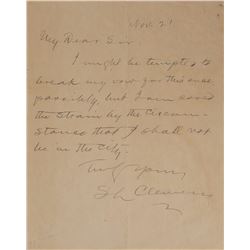 Nov. 21
My Dear Sir
I might be tempted to
break my vow for this once
possibly, but I am saved
the strain by the circum-
stance that I shall not
be in the city.
Truly Yours
SL Clemens